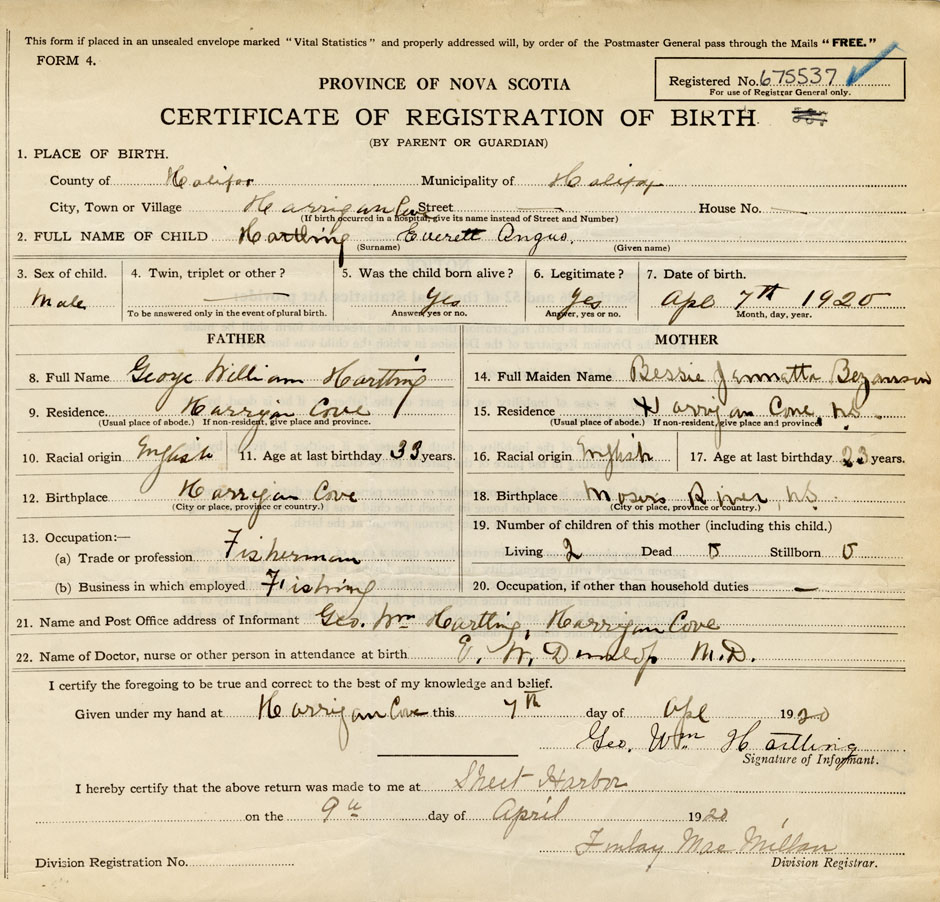 This form if placed in an unsealed envelope marked "Vital Statistics" and properly addressed will, by order of the Postmaster General pass through the Mails "FREE."
FORM 4.
Registered No. 675537
For use of Registrar General only.
PROVINCE OF NOVA SCOTIA
CERTIFICATE OF REGISTRATION OF BIRTH
(BY PARENT OR GUARDIAN)
1. PLACE OF BIRTH.
County of Halifax Municipality of Halifax
City, Town or Village Harrigan Cove Street — House No. —
(If birth occurred in a hospital, give its name instead of Street and Number)
2. FULL NAME OF CHILD Hartling Everett Angus.
(Surname) (Given name)
3. Sex of child. 4. Twin, triplet or other? 5. Was the child born alive? 6. Legitimate? 7. Date of birth.
Male — Yes Yes. Apl 7th 1920
To be answered only in the event of plural birth. Answer, yes or no. Answer, yes or no. Month, day, year.
FATHER MOTHER
8. Full Name George William Hartling 14. Full Maiden Name Bessie Jannatta Bezanson
9. Residence. Harrigan Cove 15. Residence Harrigan Cove, N.S.
(Usual place of abode.) If non-resident, give place and province. (Usual place of abode.) If non-resident, give place and province.
10. Racial origin English 11. Age at last birthday 33 years. 16. Racial origin English 17. Age at last birthday 23 years.
12. Birthplace Harrigan Cove 18. Birthplace Mosers River, N.S.
(City or place, province or country.) (City or place, province or country.)
13. Occupation:— 19. Number of children of this mother (including this child.)
(a) Trade or profession Fisherman Living 2 Dead 0 Stillborn 0
(b) Business in which employed Fishing 20. Occupation, if other than household duties —
21. Name and Post Office address of Informant Geo. Wm Hartling, Harrigan Cove
22. Name of Doctor, nurse or other person in attendance at birth E. W. Dunlop M.D.
I certify the foregoing to be true and correct to the best of my knowledge and belief.
Given under my hand at Harrigan Cove this 7th day of Apl 1920
Geo. Wm Hartling
Signature of Informant.
I hereby certify that the above return was made to me at Sheet Harbor
on the 9th day of April 1920
Finlay MacMillan
Division Registration No. Division Registrar.